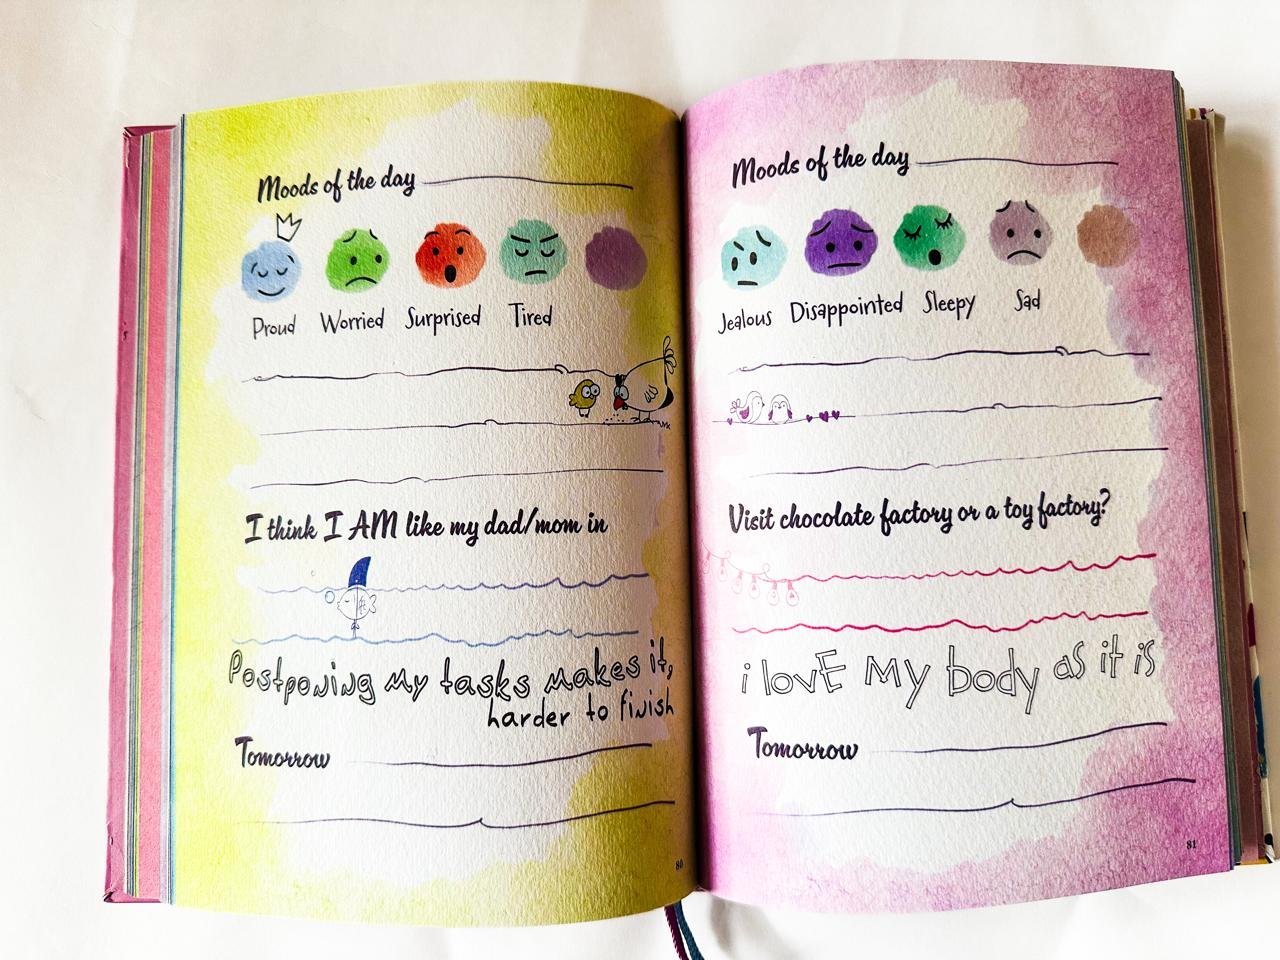 Moods of the day
Proud Worried Surprised Tired
I think I AM like my dad/mom in
Postponing my tasks makes it,
harder to finish
Tomorrow
80
Moods of the day
Jealous Disappointed Sleepy Sad
Visit chocolate factory or a toy factory?
i lovE My body as it is
Tomorrow
81